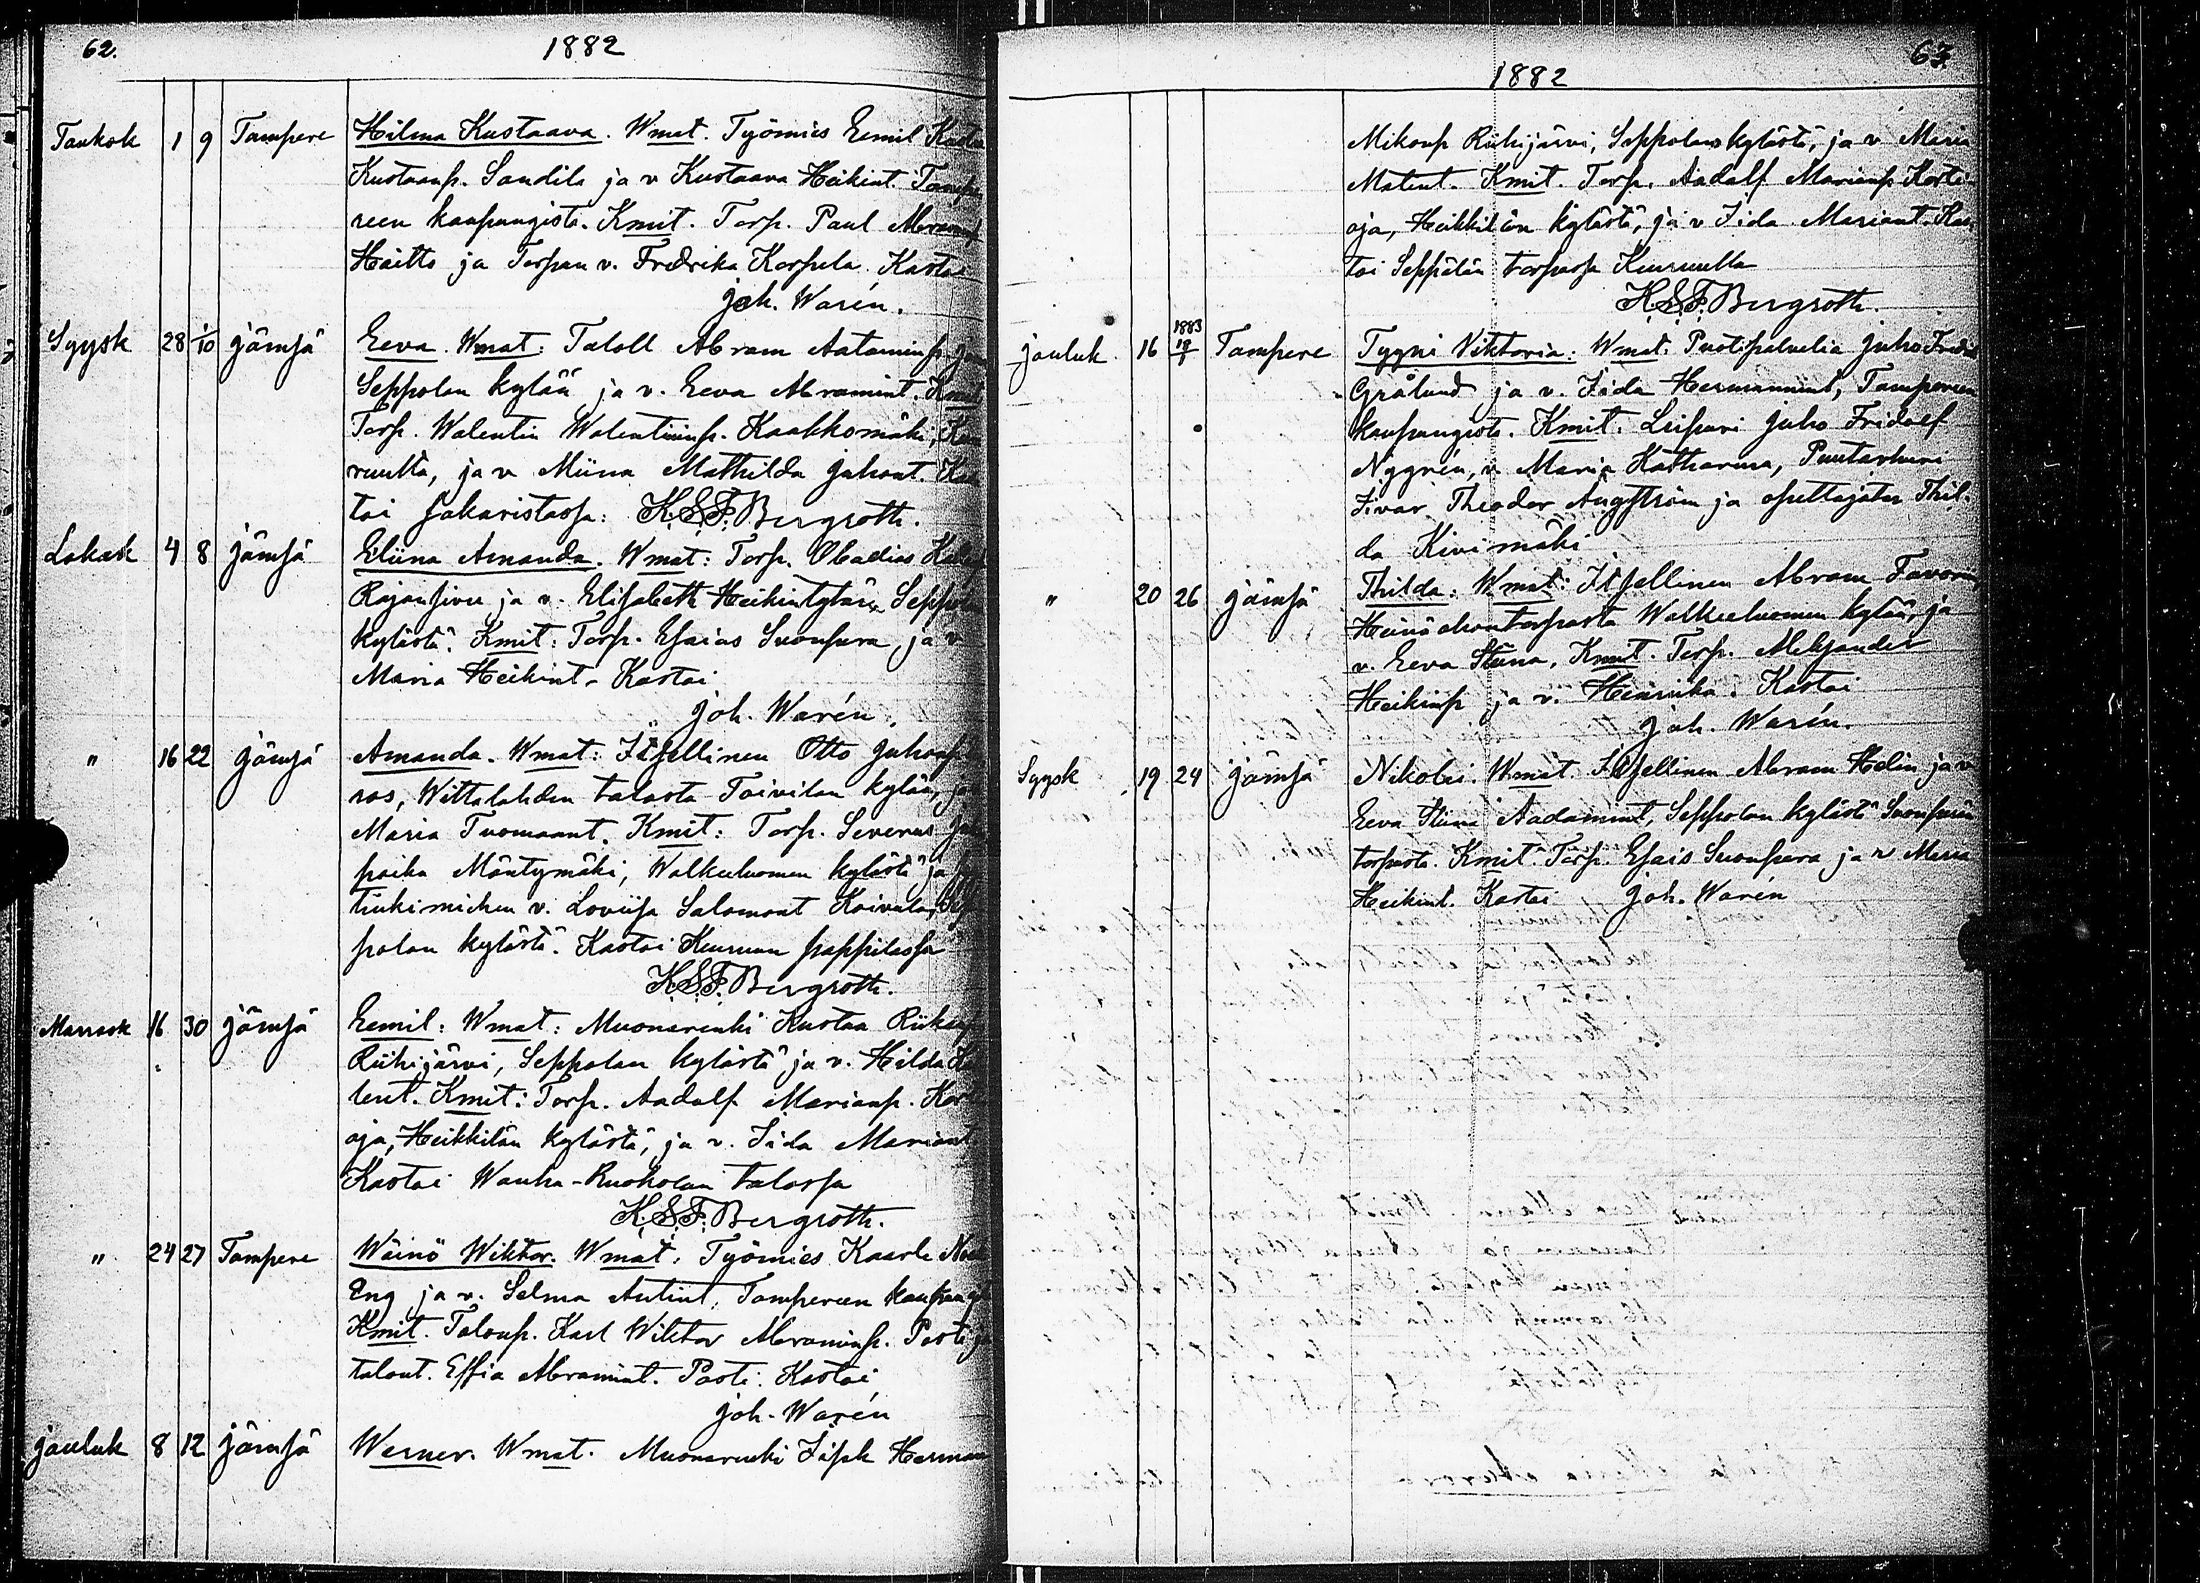 62.
1882
Toukok 1 9 Tampere Hilma Kustaava. Wmat. Työmies Eemil
Kustaanp. Sandila ja v Kustaava Heikint. Tampe
reen kaupungista. Kmit. Torp. Paul
Haitto ja Torpan v. Fredrika Korpela. Kastoi
Joh. Warén.
Syysk 28 1/10 Jämsä Eeva. Wmat: Taloll Abram Aataminp
Seppolan kylää ja v. Eeva Abramint. Kmit
Torp. Walentin Walentininp. Kaakkomäki,
ruulta, ja v Miina Mathilda Juhont. Kas
toi Sakaristossa: K.S.F. Bergroth.
Lokak 4 8 Jämsä Eliina Amanda. Wmat: Torp. Obadias
Rajansivu ja v. Elisabeth Heikintytär, Seppo
kylästä. Kmit: Torp. Esaias Suonpera, ja v
Maria Heikint. Kastoi
Joh. Warén.
" 16 22 Jämsä Amanda. Wmat: Itsellinen Otto Juhonp
ros, Wittalahden talosta Toivilan kylää, ja
Maria Tuomaant. Kmit: Torp. Severus
poika Mäntymäki, Walkeeluomen kylästä ja
tiukimiehen v. Loviisa Salomont Koivula, Sep
polan kylästä. Kastoi Keuruun pappilassa
K.S.F. Bergroth.
Marrask 16 30 Jämsä Eemil: Wmat: Muonarenki Kustaa
Riihijärvi, Seppolan kylästä ja v. Hilda
lent. Kmit: Torp. Aadolf Marianp. Kor
oja, Heikkilän kylästä, ja v. Iida Mariant
Kastoi Wanha-Ruokolan talossa
K.S.F. Bergroth.
" 24 27 Tampere Wäinö Wiktor. Wmat. Työmies Kaarle
Eng ja v. Selma Antint, Tampereen kaupung
Kmit. Talonp. Karl Wiktor Abraminp. Posti ja
talont. Effia Abramint. Posti. Kastoi
Joh. Warén
Jouluk 8 12 Jämsä Werner. Wmat. Muonarenki Iisak Herman
63.
1882
Mikonp Riihijärvi, Seppolan kylästä, ja v Maria
Matint. Kmit. Torp. Aadolf Marianp Korte
oja, Heikkilän kylästä, ja v Iida Mariant. Kas
toi Seppälän torpassa Keuruulla
K.S.F. Bergroth.
Jouluk 16 1883 Tampere Tyyni Viktoria: Wmat: Puotipalvelia Juho
Grålund ja v. Iida Hermannint, Tampereen
kaupungista. Kmit. Leipuri Juho Fridolf
Nygrén, v. Maria Katharina, Puutarhuri
Iivar Theodor Ångström ja opettajatar Thil-
da Kivimäki
" 20 26 Jämsä Thilda: Wmat: Itsellinen Abram Favorin,
Heinäahontorpasta Walkeeluomen kylää, ja
v. Eeva Stiina. Kmit. Torp. Aleksander
Heikinp ja v. Heinrika. Kastoi
Joh. Warén.
Syysk 19 24 Jämsä Nikolai. Wmat. Itsellinen Abram Helin ja v
Eeva Stiina Aadamint, Seppolan kylästä Suonperän
torpasta. Kmit. Torp. Esais Suonpera ja v Maria
Heikint. Kastoi Joh. Warén